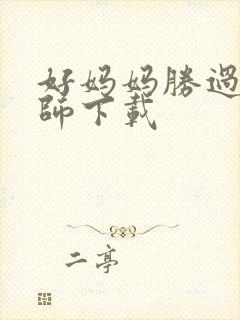 好妈妈勝過
師下載
二亭